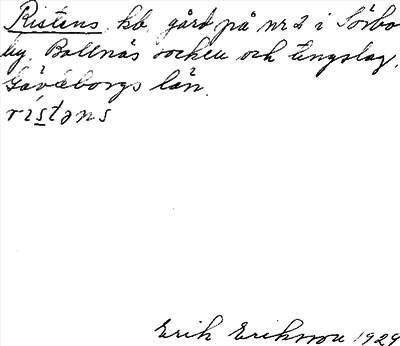 Ristens, kb. gård på nr 2 i Sörbo
by, Bollnäs socken och tingslag,
Gävleborgs län.
rístəns
Erik Eriksson 1929